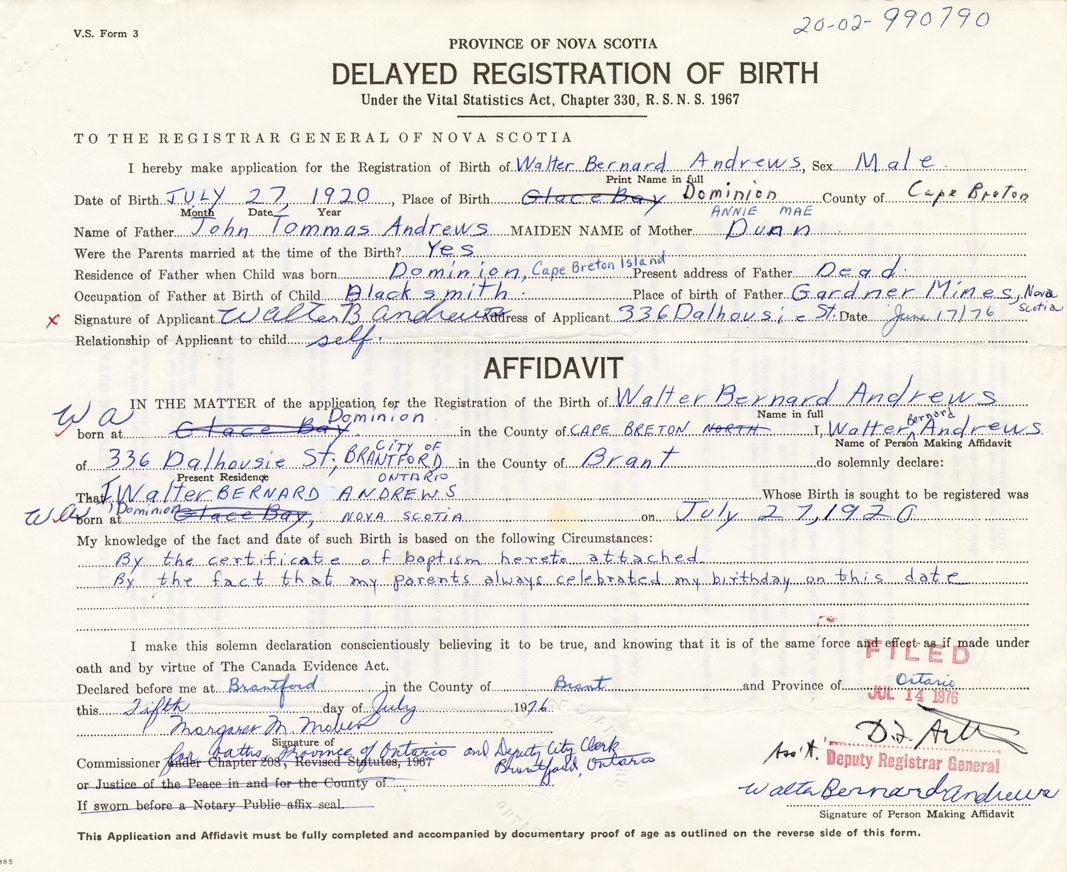 V.S. Form 3
20-02-990790
PROVINCE OF NOVA SCOTIA
DELAYED REGISTRATION OF BIRTH
Under the Vital Statistics Act, Chapter 330, R. S. N. S. 1967
TO THE REGISTRAR GENERAL OF NOVA SCOTIA
I hereby make application for the Registration of Birth of Walter Bernard Andrews, Sex Male
Print Name in full
Date of Birth JULY 27, 1920, Place of Birth Glace Bay Dominion County of Cape Breton
Month Date Year ANNIE MAE
Name of Father John Tommas Andrews MAIDEN NAME of Mother Dunn
Were the Parents married at the time of the Birth? Yes
Residence of Father when Child was born Dominion, Cape Breton Island Present address of Father Dead.
Occupation of Father at Birth of Child Blacksmith. Place of birth of Father Gardner Mines, Nova Scotia
x Signature of Applicant Walter B Andrews Address of Applicant 336 Dalhousie St. Date June 17/76
Relationship of Applicant to child self.
AFFIDAVIT
IN THE MATTER of the application for the Registration of the Birth of Walter Bernard Andrews
Name in full
W a Dominion Bernard
born at Glace Bay in the County of CAPE BRETON NORTH I, Walter Andrews
Name of Person Making Affidavit
of 336 Dalhousie St, CITY OF BRANTFORD in the County of Brant do solemnly declare:
Present Residence ONTARIO
That I Walter BERNARD ANDREWS Whose Birth is sought to be registered was
W a born at Dominion Glace Bay, NOVA SCOTIA on July 27, 1920
My knowledge of the fact and date of such Birth is based on the following Circumstances:
By the certificate of baptism hereto attached
By the fact that my parents always celebrated my birthday on this date
I make this solemn declaration conscientiously believing it to be true, and knowing that it is of the same force and effect as if made under
oath and by virtue of The Canada Evidence Act.
FILED
Declared before me at Brantford in the County of Brant and Province of Ontario
JUL 14 1976
this Fifth day of July 1976
Margaret M.
Signature of
for oaths, Province of Ontario and Deputy City Clerk
Commissioner under Chapter 208, Revised Statutes, 1967 Brantford, Ontario
Ass't. Deputy Registrar General
or Justice of the Peace in and for the County of
Walter Bernard Andrews
If sworn before a Notary Public affix seal.
Signature of Person Making Affidavit
This Application and Affidavit must be fully completed and accompanied by documentary proof of age as outlined on the reverse side of this form.
885